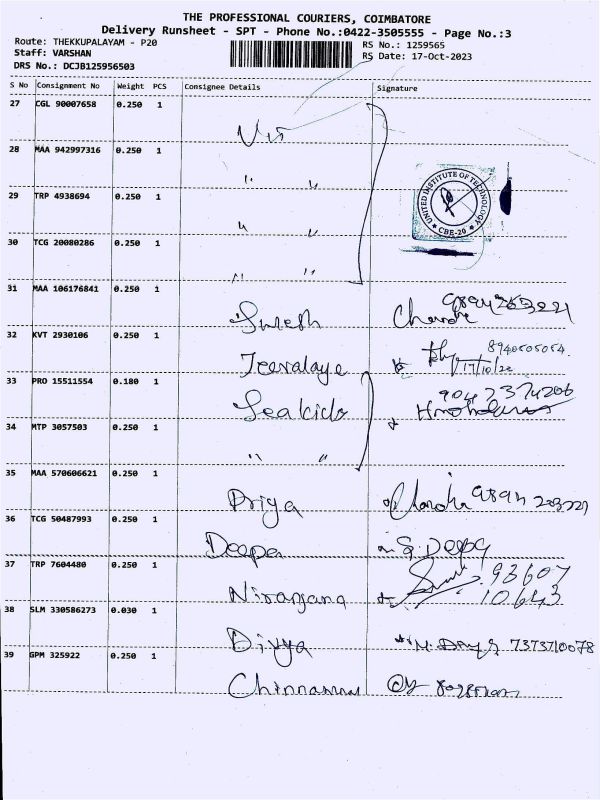 THE PROFESSIONAL COURIERS, COIMBATORE
Delivery Runsheet - SPT - Phone No.:0422-3505555 - Page No.:3
Route: THEKKUPALAYAM - P20
RS No.: 1259565
Staff: VARSHAN
RS Date: 17-Oct-2023
DRS No.: DCJB125956503
S No Consignment No Weight PCS Consignee Details Signature
27 CGL 90007658 0.250 1
28 MAA 942997316 0.250 1
" "
29 TRP 4938694 0.250 1
UNITED INSTITUTE OF TECHNOLOGY
* CBE-20 *
" "
30 TCG 20080286 0.250 1
" "
31 MAA 106176841 0.250 1
Suresh
32 KVT 2930106 0.250 1
8940505054
Jeevalaye 17/10/23
33 PRO 15511554 0.180 1
34 MTP 3057503 0.250 1
" "
35 MAA 570606621 0.250 1
Priya
36 TCG 50487993 0.250 1
Deepa S. Deepa
37 TRP 7604480 0.250 1
93607
Niranjana 10643
38 SLM 330586273 0.030 1
Divya 7373710078
39 GPM 325922 0.250 1